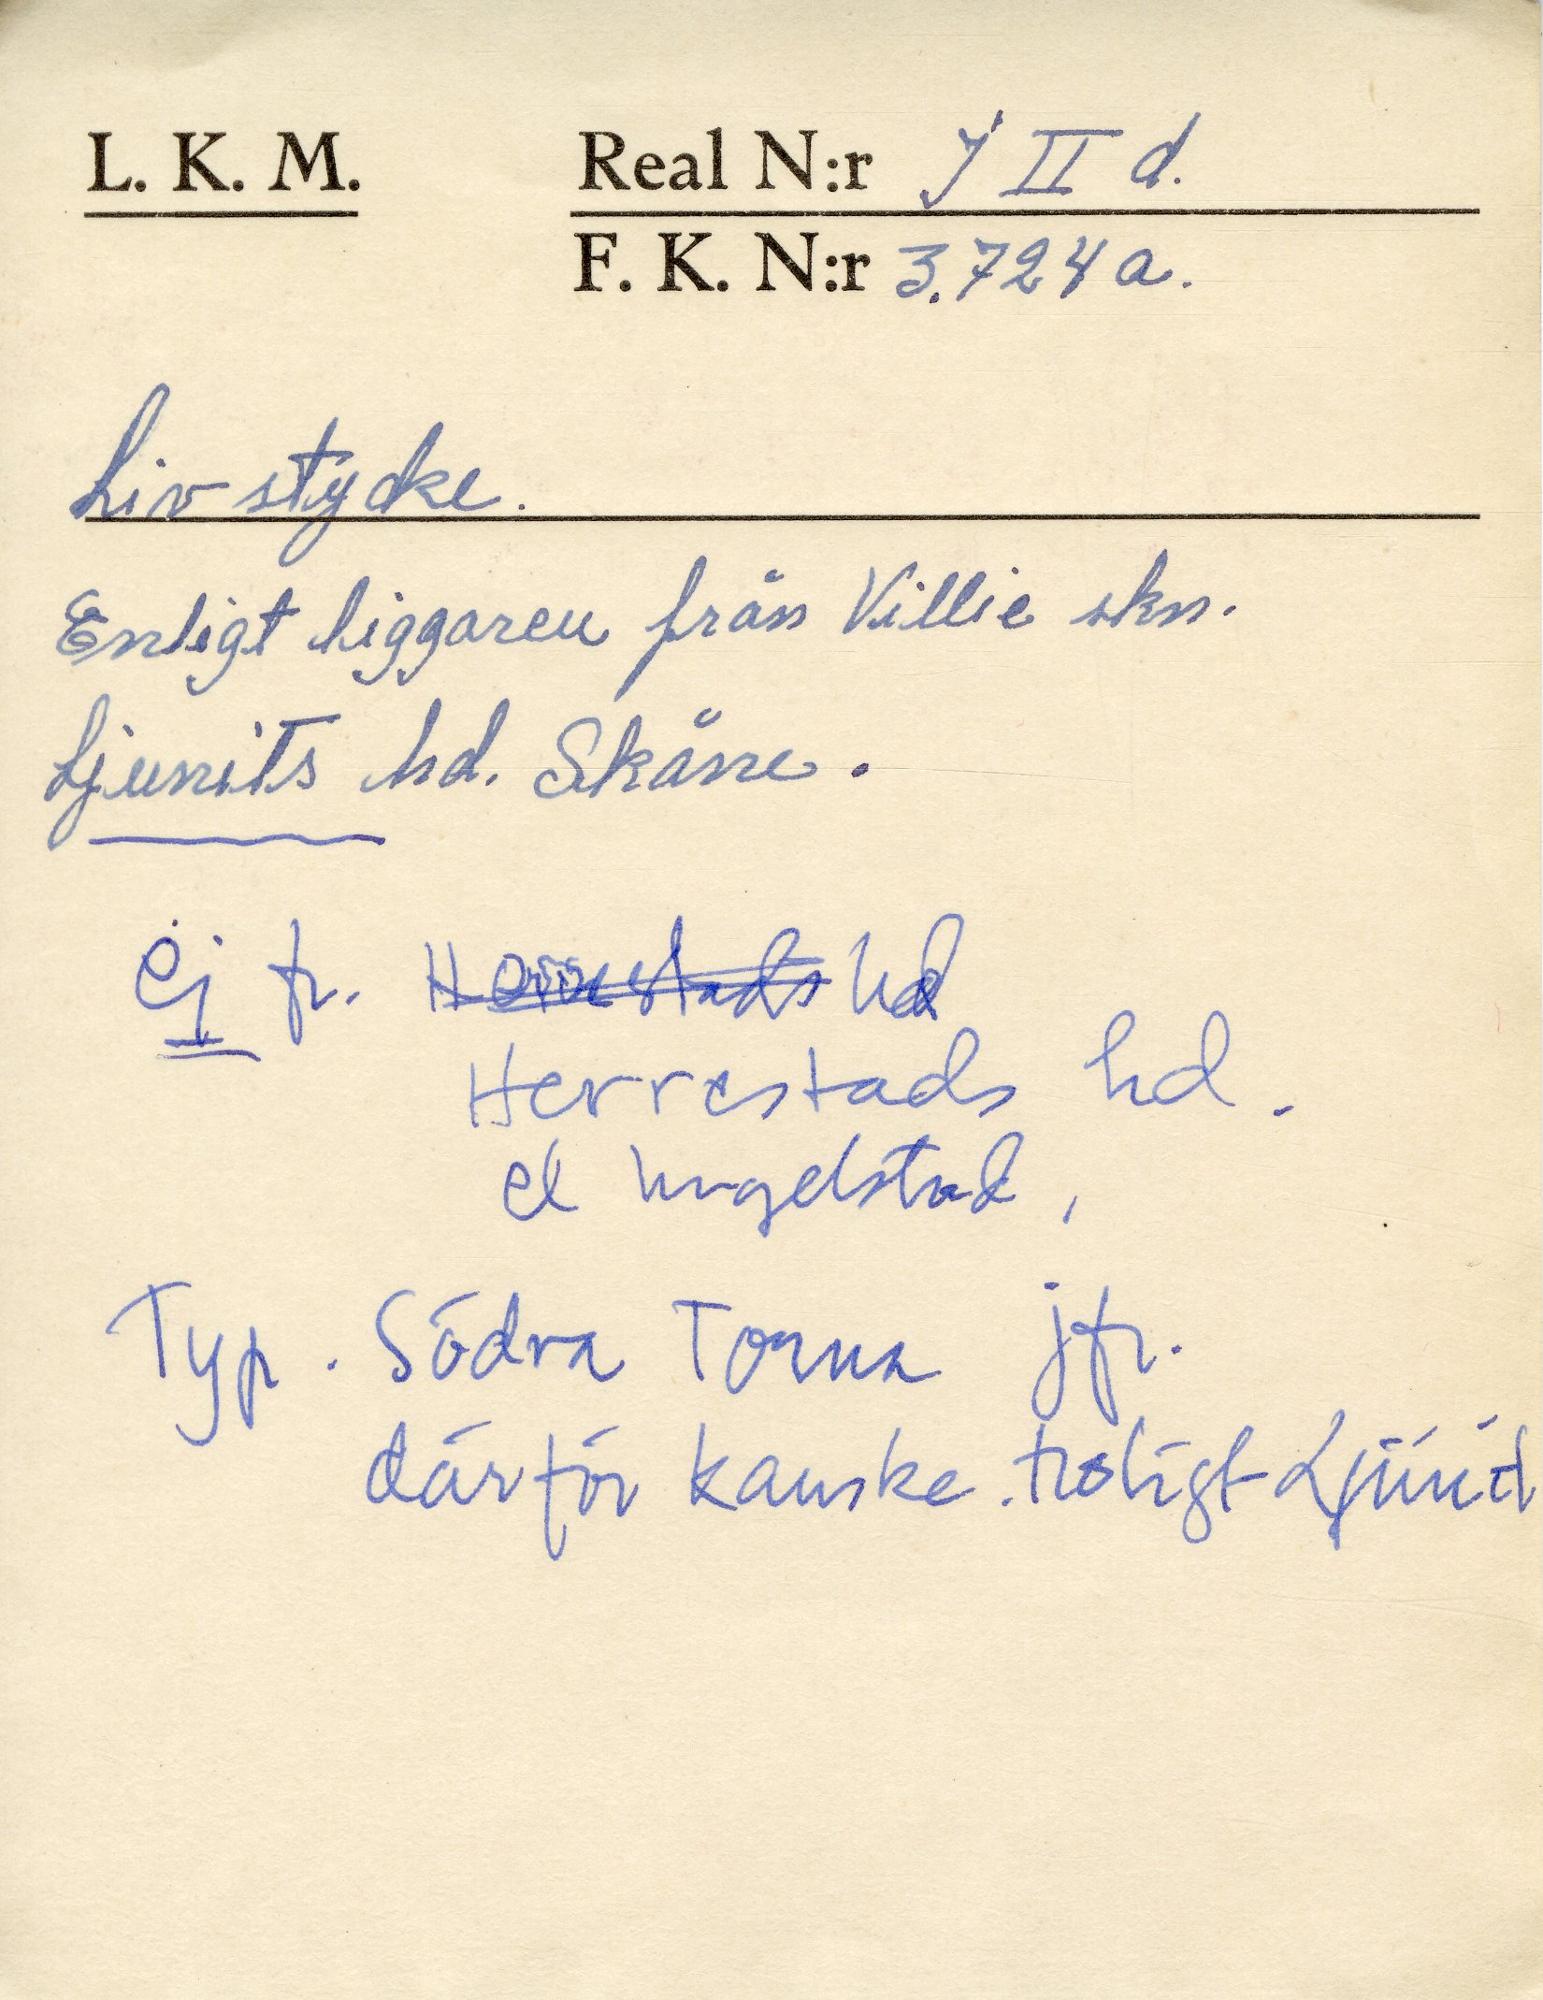 L. K. M. Real N:r J II d.
F. K. N:r 3.724 a.
Livstycke.
Enligt liggaren från Villie skn.
Ljunits hd. Skåne.
ej fr. Herrestads hd
Herrestads hd.
el Ingelstad,
Typ. Södra Torna jfr.
därför kanske troligt Ljunit